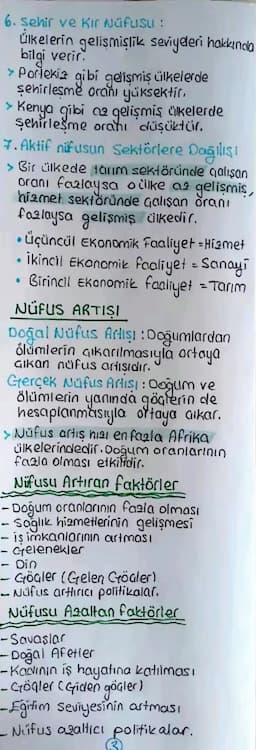 6. Şehir ve Kır Nüfusu :
Ülkelerin gelişmişlik seviyeleri hakkında
bilgi verir.
> Portekiz gibi gelişmiş ülkelerde
şehirleşme oranı yüksektir.
> Kenya gibi az gelişmiş ülkelerde
şehirleşme oranı düşüktür.
7. Aktif nüfusun Sektörlere Dağılışı
> Bir ülkede tarım sektöründe çalışan
oranı fazlaysa o ülke az gelişmiş,
hizmet sektöründe çalışan oranı
fazlaysa gelişmiş ülkedir.
• Üçüncül Ekonomik Faaliyet = Hizmet
• İkincil Ekonomik faaliyet = Sanayi
• Birincil Ekonomik faaliyet = Tarım
NÜFUS ARTIŞI
Doğal Nüfus Artışı : Doğumlardan
ölümlerin çıkarılmasıyla ortaya
çıkan nüfus artışıdır.
Gerçek Nüfus Artışı : Doğum ve
ölümlerin yanında göçlerin de
hesaplanmasıyla ortaya çıkar.
> Nüfus artış hızı en fazla Afrika
ülkelerindedir. Doğum oranlarının
fazla olması etkilidir.
Nüfusu Artıran Faktörler
- Doğum oranlarının fazla olması
- Sağlık hizmetlerinin gelişmesi
- iş imkanlarının artması
- Gelenekler
- Din
- Göçler (Gelen Göçler)
- Nüfus arttırıcı politikalar.
Nüfusu Azaltan Faktörler
- Savaşlar
- Doğal Afetler
- Kadının iş hayatına katılması
- Göçler (Giden göçler)
- Eğitim seviyesinin artması
- Nüfus azaltıcı politikalar.
3